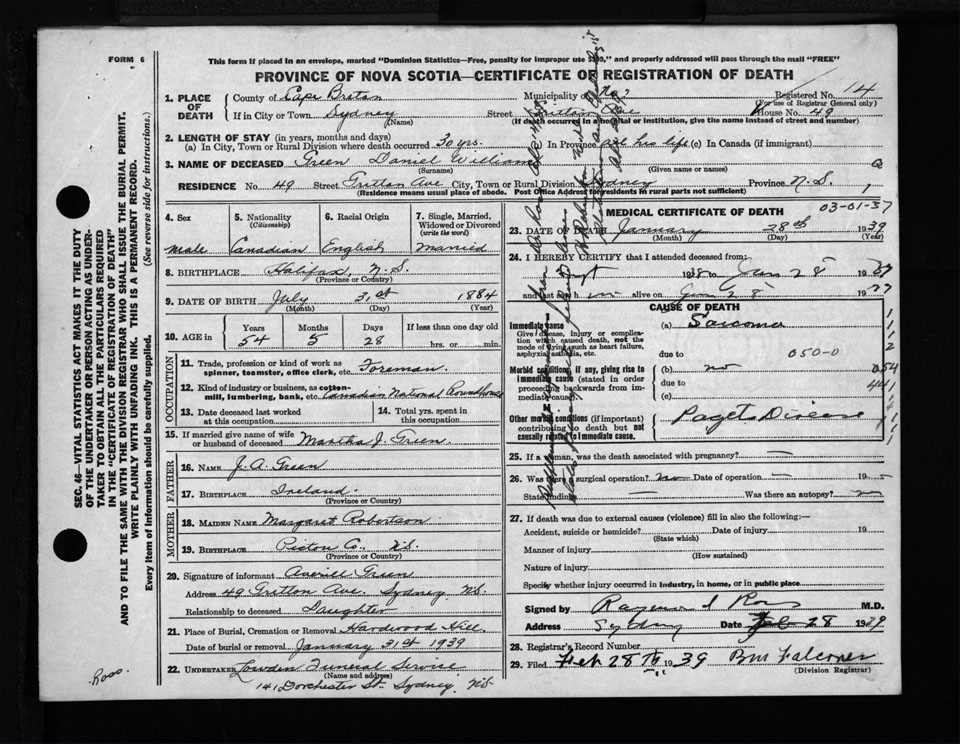 FORM 6
This form if placed in an envelope, marked "Dominion Statistics—Free, penalty for improper use $300," and properly addressed will pass through the mail "FREE"
PROVINCE OF NOVA SCOTIA—CERTIFICATE OF REGISTRATION OF DEATH
1. PLACE OF DEATH
County of Cape Breton Municipality of
Registered No. 14
(For use of Registrar General only)
If in City or Town Sydney Street House No. 49
(Name) (If death occurred in a hospital or institution, give the name instead of street and number)
2. LENGTH OF STAY (in years, months and days)
(a) In City, Town or Rural Division where death occurred 30 yrs. In Province all his life (c) In Canada (if immigrant)
3. NAME OF DECEASED Green Daniel William
(Surname) (Given name or names)
RESIDENCE No. 49 Street Ave City, Town or Rural Division Sydney Province N.S.
(Residence means usual place of abode. Post Office Address for residents in rural parts not sufficient)
4. Sex
Male
5. Nationality
(Citizenship)
Canadian
6. Racial Origin
English
7. Single, Married, Widowed or Divorced
(write the word)
Married
8. BIRTHPLACE Halifax, N.S.
(Province or Country)
9. DATE OF BIRTH July 31st 1884
(Month) (Day) (Year)
10. AGE in Years Months Days If less than one day old
54 5 28 hrs. or min.
OCCUPATION
11. Trade, profession or kind of work as
spinner, teamster, office clerk, etc. Foreman.
12. Kind of industry or business, as cotton-
mill, lumbering, bank, etc. Canadian National Roundhouse
13. Date deceased last worked
at this occupation
14. Total yrs. spent in
this occupation
15. If married give name of wife
or husband of deceased Martha J. Green.
FATHER
16. NAME J. A. Green
17. BIRTHPLACE Ireland.
(Province or Country)
MOTHER
18. MAIDEN NAME Margaret Robertson
19. BIRTHPLACE Pictou Co. N.S.
(Province or Country)
20. Signature of informant Averill Green
Address 49 Ave. Sydney, N.S.
Relationship to deceased Daughter
21. Place of Burial, Cremation or Removal Hardwood Hill.
Date of burial or removal January 31st 1939
22. UNDERTAKER Lowden Funeral Service
(Name and address)
141 Dorchester St. Sydney, N.S.
Ross
MEDICAL CERTIFICATE OF DEATH 03-01-37
23. DATE OF DEATH January 28th 1939
(Month) (Day) (Year)
24. I HEREBY CERTIFY that I attended deceased from:
1938 to Jan 28 1939
and last saw him alive on Jan 28 1939
CAUSE OF DEATH
Immediate cause
Give disease, injury or complication which caused death, not the mode of dying such as heart failure, asphyxia, asthenia, etc.
(a) Sarcoma
due to 050-0
Morbid conditions if any, giving rise to immediate cause (stated in order proceeding backwards from immediate cause)
(b) no
due to
(c)
Other morbid conditions (if important) contributing to death but not causally related to immediate cause.
Pagets Disease
25. If a woman, was the death associated with pregnancy? —
26. Was there surgical operation? no Date of operation — 19
State finding — Was there an autopsy? no
27. If death was due to external causes (violence) fill in also the following:—
Accident, suicide or homicide? Date of injury 19
(State which)
Manner of injury
(How sustained)
Nature of injury
Specify whether injury occurred in industry, in home, or in public place
Signed by M.D.
Address Sydney Date Feb 28 1939
28. Registrar's Record No.
29. Filed Feb 28th 1939 BM Falconer
(Division Registrar)
SEC. 46—VITAL STATISTICS ACT MAKES IT THE DUTY
OF THE UNDERTAKER OR PERSON ACTING AS UNDER-
TAKER TO OBTAIN ALL THE PARTICULARS REQUIRED
IN THE "CERTIFICATE OF REGISTRATION OF DEATH"
AND TO FILE THE SAME WITH THE DIVISION REGISTRAR WHO SHALL ISSUE THE BURIAL PERMIT.
WRITE PLAINLY WITH UNFADING INK. THIS IS A PERMANENT RECORD.
Every item of Information should be carefully supplied. (See reverse side for instructions.)